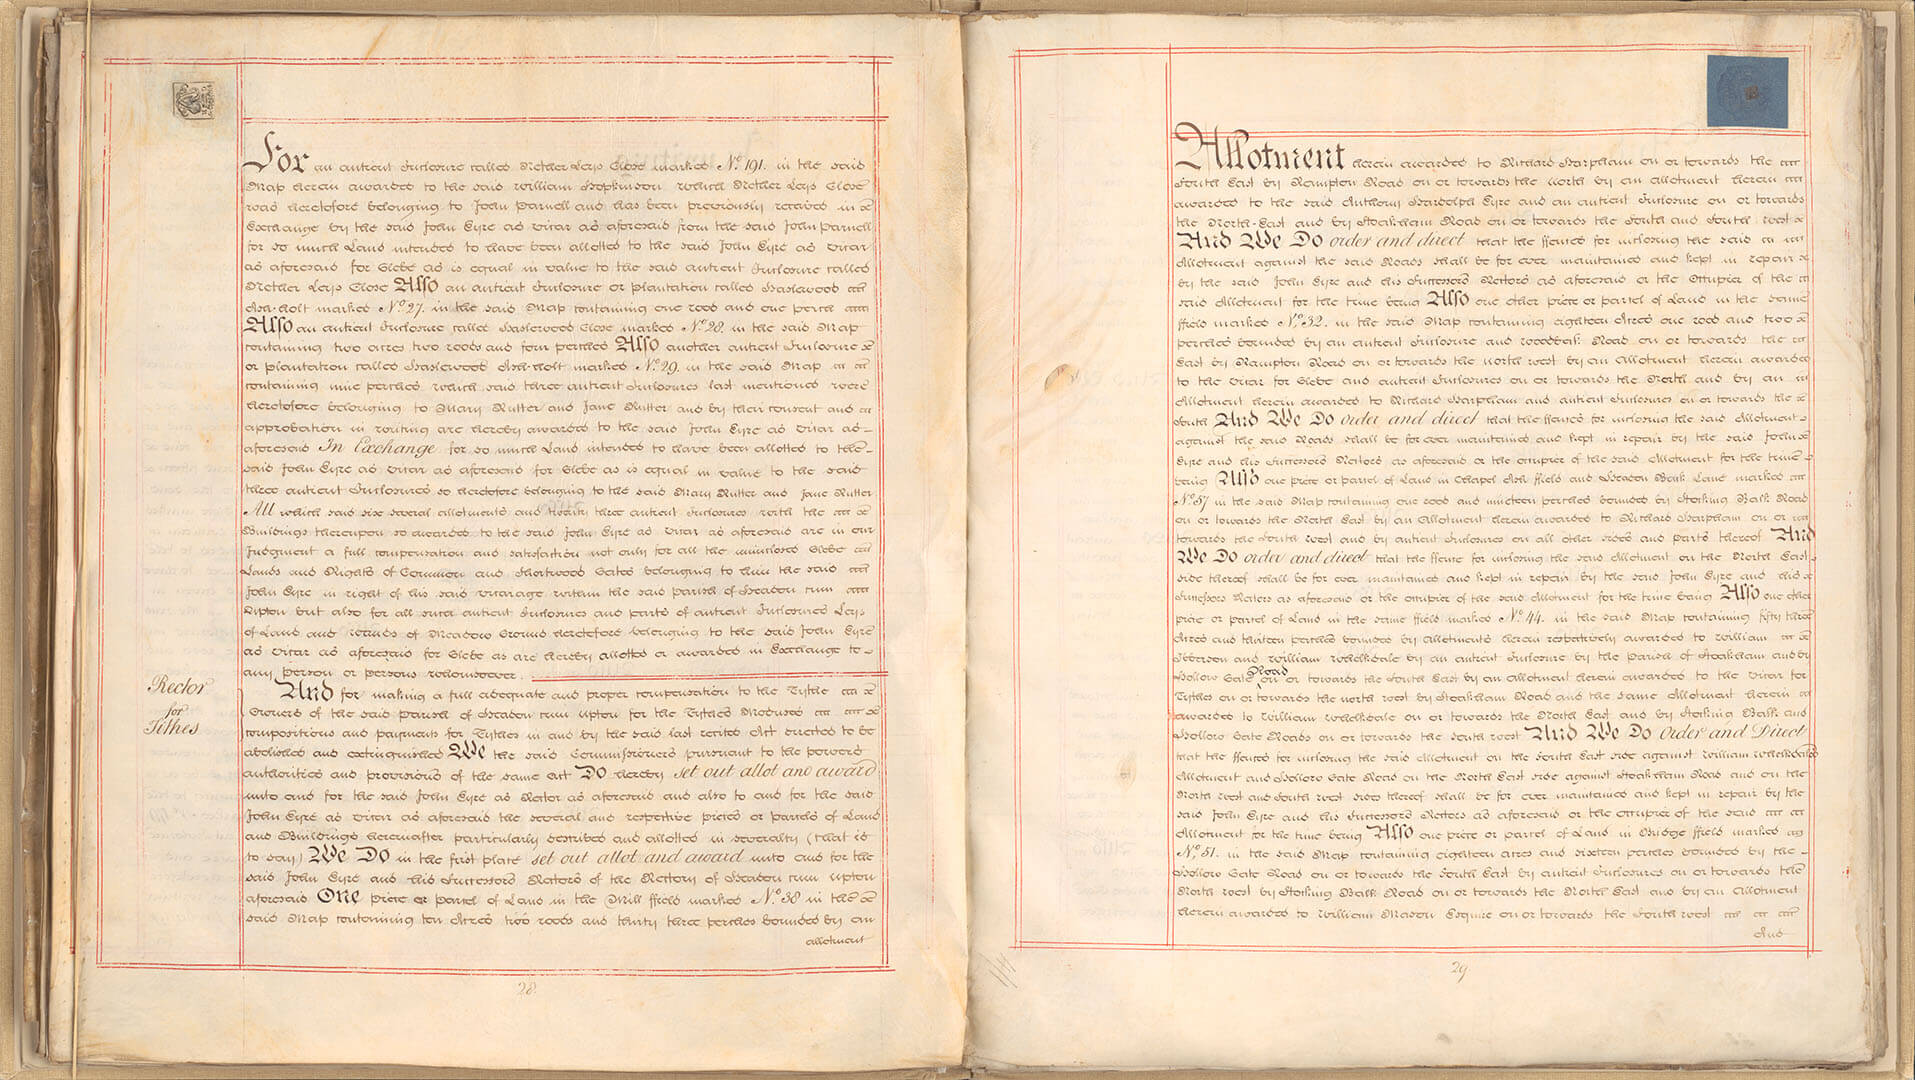 For an antient Inclosure called Nether Leys Close marked No. 191. in the said
Map herein awarded to the said William Hopkinson which Nether Leys Close
was heretofore belonging to John Parnell and has been previously received in
Exchange by the said John Eyre as Vicar as aforesaid from the said John Parnell
for so much Land intended to have been allotted to the said John Eyre as Vicar
as aforesaid for Glebe as is equal in value to the said antient Inclosure called
Nether Leys Close Also an antient Inclosure or plantation called Haslewood
Ash-holt marked No. 27. in the said Map containing one rood and one perch
Also an antient Inclosure called Haslewood Close marked No. 28. in the said Map
containing two acres two roods and four perches Also another antient Inclosure
or plantation called Haslewood Ash-holt marked No. 29. in the said Map
containing nine perches which said three antient Inclosures last mentioned were
heretofore belonging to Mary Rutter and Jane Rutter and by their consent and
approbation in writing are hereby awarded to the said John Eyre as Vicar as
aforesaid In Exchange for so much Land intended to have been allotted to the
said John Eyre as Vicar as aforesaid for Glebe as is equal in value to the said
three antient Inclosures so heretofore belonging to the said Mary Rutter and Jane Rutter
All which said six several allotments and twenty three antient Inclosures with the
Buildings thereupon so awarded to the said John Eyre as Vicar as aforesaid are in our
Judgment a full compensation and satisfaction not only for all the uninclosed Glebe
Lands and Rights of Common and Shortwood Gates belonging to him the said
John Eyre in right of his said vicarage within the said parish of Headon cum
Upton but also for all such antient Inclosures and parts of antient Inclosures Leys
of Land and rounds of Meadow Ground heretofore belonging to the said John Eyre
as Vicar as aforesaid for Glebe as are hereby allotted or awarded in Exchange to
any person or persons whomsoever.
Rector
for
Tithes
And for making a full adequate and proper compensation to the Tythe
Owners of the said parish of Headon cum Upton for the Tythes Moduses
compositions and payments for Tythes in and by the said last recited Act directed to be
abolished and extinguished We the said Commissioners pursuant to the powers
authorities and provisions of the same act Do hereby set out allot and award
unto and for the said John Eyre as Rector as aforesaid and also to and for the said
John Eyre as Vicar as aforesaid the several and respective pieces or parcels of Land
and Buildings hereinafter particularly described and allotted in severalty (that is
to say) We Do in the first place set out allot and award unto and for the
said John Eyre and his Successors Rectors of the Rectory of Headon cum Upton
aforesaid One piece or parcel of Land in the Mill ffield marked No. 38 in the
said Map containing ten Acres two roods and thirty three perches bounded by an
allotment
28.
Allotment herein awarded to Richard Harpham on or towards the
South East by Rampton Road on or towards the North by an allotment herein
awarded to the said Anthony Hardolph Eyre and an antient Inclosure on or towards
the North-East and by Stokeham Road on or towards the South and South West
And We Do order and direct that the ffences for inclosing the said
Allotment against the said Roads shall be for ever maintained and kept in repair
by the said John Eyre and his Successors Rectors as aforesaid or the Occupier of the
said Allotment for the time being Also one other piece or parcel of Land in the same
ffield marked No. 32. in the said Map containing eighteen Acres one rood and two
perches bounded by an antient Inclosure and Woodbeck Road on or towards the
East by Rampton Road on or towards the North West by an Allotment herein awarded
to the Vicar for Glebe and antient Inclosures on or towards the North and by an
Allotment herein awarded to Richard Harpham and antient Inclosures on or towards the
South And We Do order and direct that the ffences for inclosing the said Allotment
against the said Roads shall be for ever maintained and kept in repair by the said John
Eyre and his Successors Rectors as aforesaid or the occupier of the said Allotment for the time
being Also one piece or parcel of Land in Chapel Ash ffield and Headon Balk Lane marked
No. 57 in the said Map containing one rood and nineteen perches bounded by Stocking Balk Road
on or towards the North East by an Allotment herein awarded to Richard Harpham on or
towards the South West and by antient Inclosures on all other sides and parts thereof And
We Do order and direct that the ffence for inclosing the said Allotment on the North East
side thereof shall be for ever maintained and kept in repair by the said John Eyre and his
Successors Rectors as aforesaid or the occupier of the said Allotment for the time being Also one other
piece or parcel of Land in the same ffield marked No. 44. in the said Map containing fifty three
Acres and thirteen perches bounded by Allotments herein respectively awarded to William
Ibberson and William Whelkdale by an antient Inclosure by the parish of Stokeham and by
Hollow Gate Road on or towards the South East by an Allotment herein awarded to the Vicar for
Tythes on or towards the North West by Stokeham Road and the same Allotment herein
awarded to William Whelkdale on or towards the North East and by Stocking Balk and
Hollow Gate Roads on or towards the South West And We Do Order and Direct
that the ffences for inclosing the said Allotment on the South East side against William Whelkdale's
Allotment and Hollow Gate Road on the North East side against Stokeham Road and on the
North West and South West sides thereof shall be for ever maintained and kept in repair by the
said John Eyre and his Successors Rectors as aforesaid or the occupier of the said
Allotment for the time being Also one piece or parcel of Land in Bridge ffield marked
No. 51. in the said Map containing eighteen acres and sixteen perches bounded by the
Hollow Gate Road on or towards the South East by antient Inclosures on or towards the
North West by Stocking Balk Road on or towards the North East and by an Allotment
herein awarded to William Mason Esquire on or towards the South West
And
29